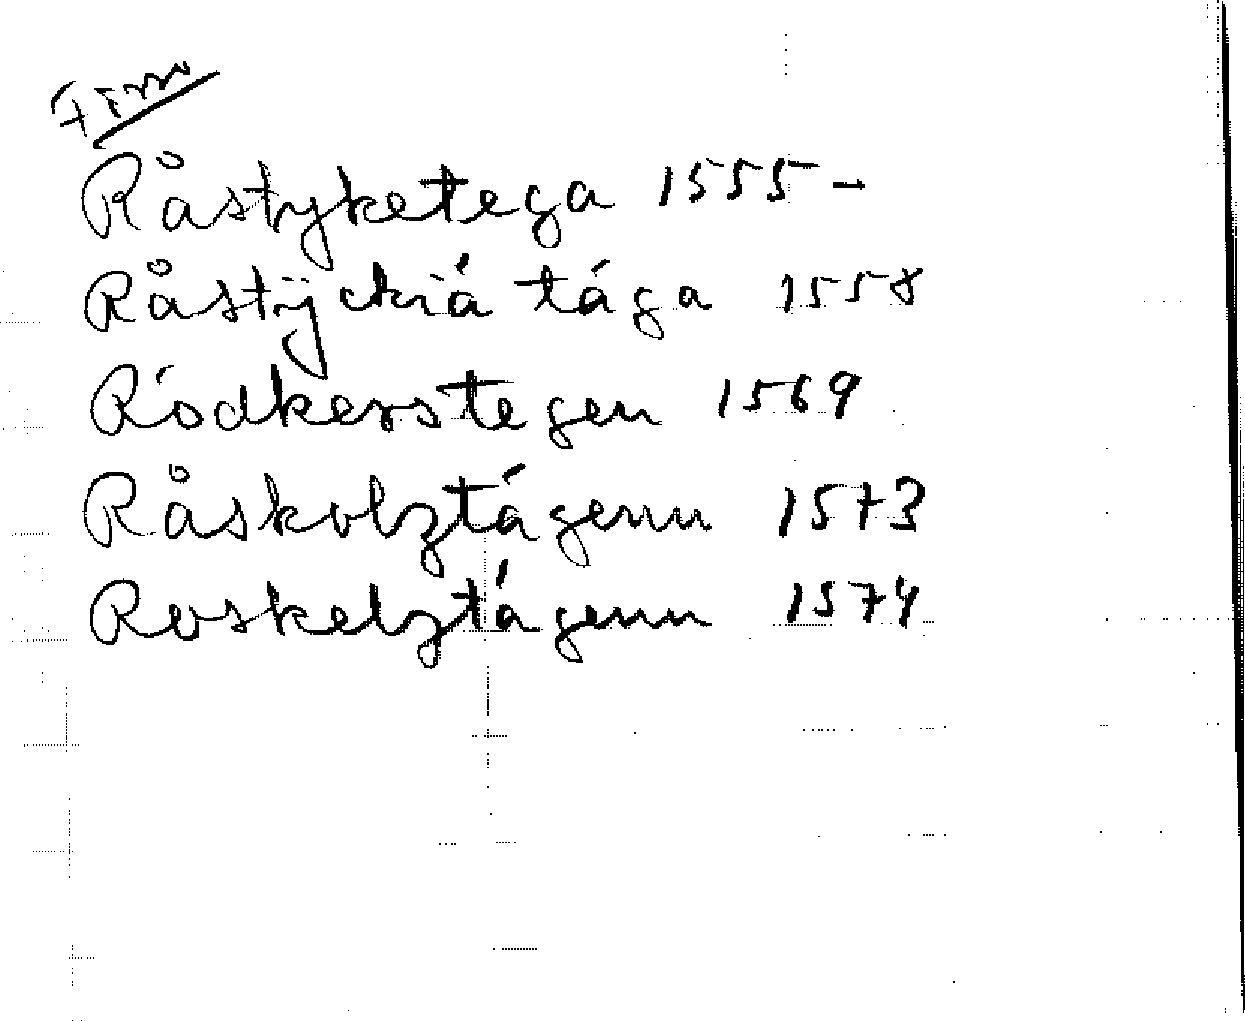 Finno
Råstyketega 1555-
Råstÿckiá tága 1558
Ródkerstegen 1569
Råskolztágenn 1573
Roskelztágenn 1574